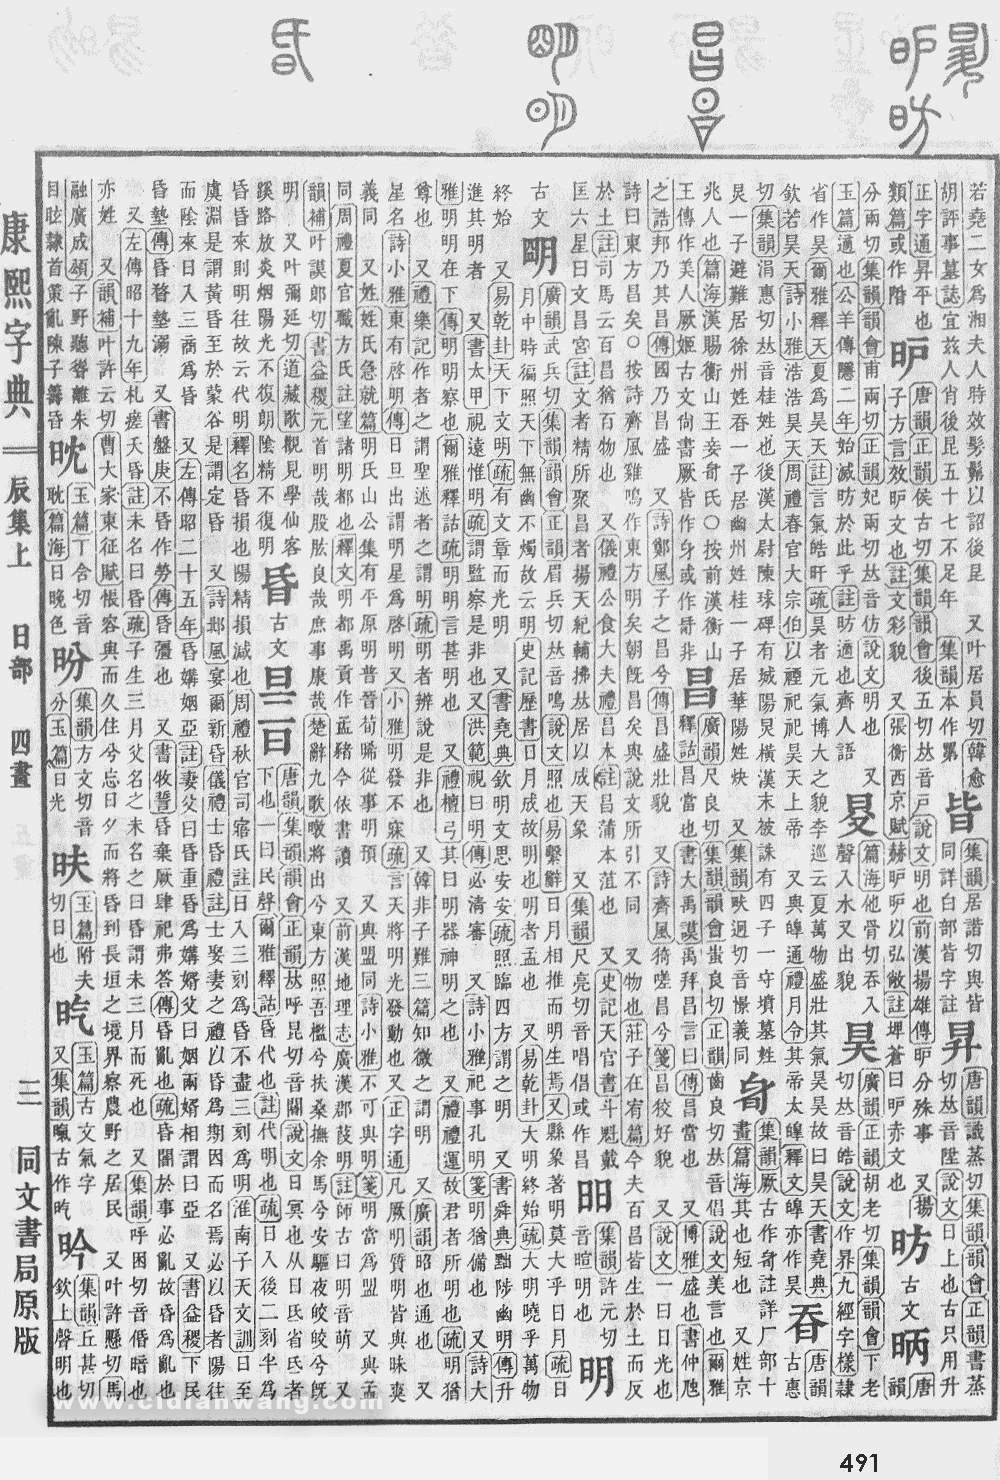 若堯二女爲湘夫人時效髣髴以詔後昆 又叶居員切韓愈
胡評事墓誌宜茲人肖後昆五十七不足年 集韻本作䍺
皆 集韻居諧切與皆同詳白部皆字註
昇 唐韻識蒸切集韻韻會正韻書蒸切𠀤音陞說文日上也古只用升
正字通昇平也
類篇或作阩
昈 唐韻正韻侯古切集韻韻會後五切𠀤音戸說文明也前漢揚雄傳昈分殊事 又揚子方言效昈文也註文彩貌 又張衡西京賦赫昈昈以弘敞註埤蒼曰昈赤文也
昉 古文昞 唐韻分兩切集韻韻會甫兩切正韻妃兩切𠀤音仿說文明也 又玉篇適也公羊傳隱二年始滅昉於此乎註昉適也齊人語
㫚 篇海他骨切吞入聲入水又出貌
昊 廣韻正韻胡老切集韻韻會下老切𠀤音皓說文作界九經字樣隸省作昊爾雅釋天夏爲昊天註言氣皓旰疏昊者元氣博大之貌李巡云夏萬物盛壯其氣昊昊故曰昊天書堯典欽若昊天詩小雅浩浩昊天周禮春官大宗伯以禋祀祀昊天上帝 又與皞通禮月令其帝太皞釋文皞亦作昊
昋 唐韻古惠切集韻涓惠切𠀤音桂姓也後漢太尉陳球碑有城陽炅橫漢末被誅有四子一守墳墓姓炅一子避難居徐州姓昋一子居幽州姓桂一子居華陽姓炔 又集韻畎迥切音憬義同
㫖 集韻厥古作㫖註詳厂部十畫篇海其也短也 又姓京兆人也篇海漢賜衡山王妾㫖氏○按前漢衡山王傳作美人厥姬古文尙書厥皆作身或作㫖非
昌 廣韻尺良切集韻韻會蚩良切正韻齒良切𠀤音倡說文美言也爾雅釋詁昌當也書大禹謨禹拜昌言曰傳昌當也 又博雅盛也書仲虺之誥邦乃其昌傳國乃昌盛 又詩鄭風子之昌兮傳昌盛壯貌 又詩齊風猗嗟昌兮箋昌佼好貌 又說文一曰日光也詩曰東方昌矣○按詩齊風雞鳴作東方明矣朝旣昌矣與說文所引不同 又物也莊子在宥篇今夫百昌皆生於土而反於土註司馬云百昌猶百物也 又儀禮公食大夫禮昌本註昌蒲本菹也 又史記天官書斗魁戴匡六星曰文昌宮註文者精所聚昌者揚天紀輔拂𠀤居以成天象 又集韻尺亮切音唱倡或作昌
昍 集韻許元切音暄明也
明 古文朙 廣韻武兵切集韻韻會正韻眉兵切𠀤音鳴說文照也易繫辭日月相推而明生焉又縣象著明莫大乎日月疏日月中時徧照天下無幽不燭故云明 史記歷書日月成故明也明者孟也 又易乾卦大明終始疏大明曉乎萬物終始 又易乾卦天下文明疏有文章而光明 又書堯典欽明文思安安疏照臨四方謂之明 又書舜典黜陟幽明傳升進其明者 又書太甲視遠惟明疏謂監察是非也 又洪範視曰明傳必淸審 又詩小雅祀事孔明箋明猶備也 又詩大雅明明在下傳明明察也爾雅釋詁疏明明言甚明也 又禮檀弓其曰明器神明之也 又禮禮運故君者所明也疏明猶尊也 又禮樂記作者之謂聖述者之謂明疏明者辨說是非也 又韓非子難三篇知微之謂明 又廣韻昭也通也 又星名詩小雅東有啓明傳日旦出謂明星爲啓明 又小雅明發不寐疏言天將明光發動也 又正字通凡厥明質明皆與昧爽義同 又姓姓氏急就篇明氏山公集有平原明普晉荀晞從事明預 又與盟同詩小雅不可與明箋明當爲盟 又與孟同周禮夏官職方氏註望諸明都也釋文明都禹貢作孟豬今依書讀 又前漢地理志廣漢郡葭明註師古曰明音萌 又韻補叶謨郎切書益稷元首明哉股肱良哉庶事康哉楚辭九歌暾將出兮東方照吾檻兮扶桑撫余馬兮安驅夜皎皎兮旣明 又叶彌延切道藏歌觀見學仙客蹊路放炎烟陽光不復朗陰精不復明
昏 古文旦二日 唐韻集韻韻會正韻𠀤呼昆切音閽說文日冥也从日氐省氐者下也一曰民聲爾雅釋詁昏代也註代明也疏日入後二刻半爲昏昏來則明往故云代明釋名昏損也陽精損滅也周禮秋官司寤氏註日入三刻爲昏不盡三刻爲明淮南子天文訓日至虞淵是謂黃昏至於蒙谷是謂定昏 又詩邶風宴爾新昏儀禮士昏禮註士娶妻之禮以昏爲期因而名焉必以昏者陽往而陰來日入三商爲昏 又左傳昭二十五年昏媾姻亞註妻父曰昏重昏爲媾婿父曰姻兩婿相謂曰亞 又書益稷下民昏墊傳昏瞀墊溺 又書盤庚不昏作勞傳昏彊也 又書牧誓昏棄厥肆祀弗答傳昏亂也疏昏闇於事必亂故昏爲亂也 又左傳昭十九年札瘥夭昏註未名曰昏疏子生三月父名之未名之曰昏謂未三月而死也 又集韻呼困切音惛暗也亦姓 又韻補叶許云切曹大家東征賦悵容與而久住兮忘日夕而將昏到長垣之境界察農野之居民 又叶許懸切馬融廣成頌子野聽聳離朱目眩隷首策亂陳子籌昏
㫛 玉篇丁含切音耽篇海日晚色
昐 集韻方文切音分玉篇日光
㫙 玉篇附夫切日也
㫓 玉篇古文氣字 又集韻暣古作㫓
昑 集韻丘甚切欽上聲明也
康熙字典
辰集上 日部 四畫
三
同文書局原版
www.cidianwang.com
491